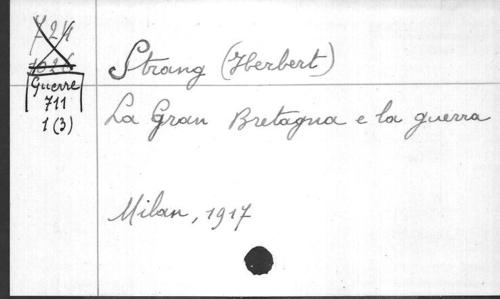 Guerre
711
1(3)
Strang (Herbert)
La Gran Bretagna e la guerra
Milan, 1917